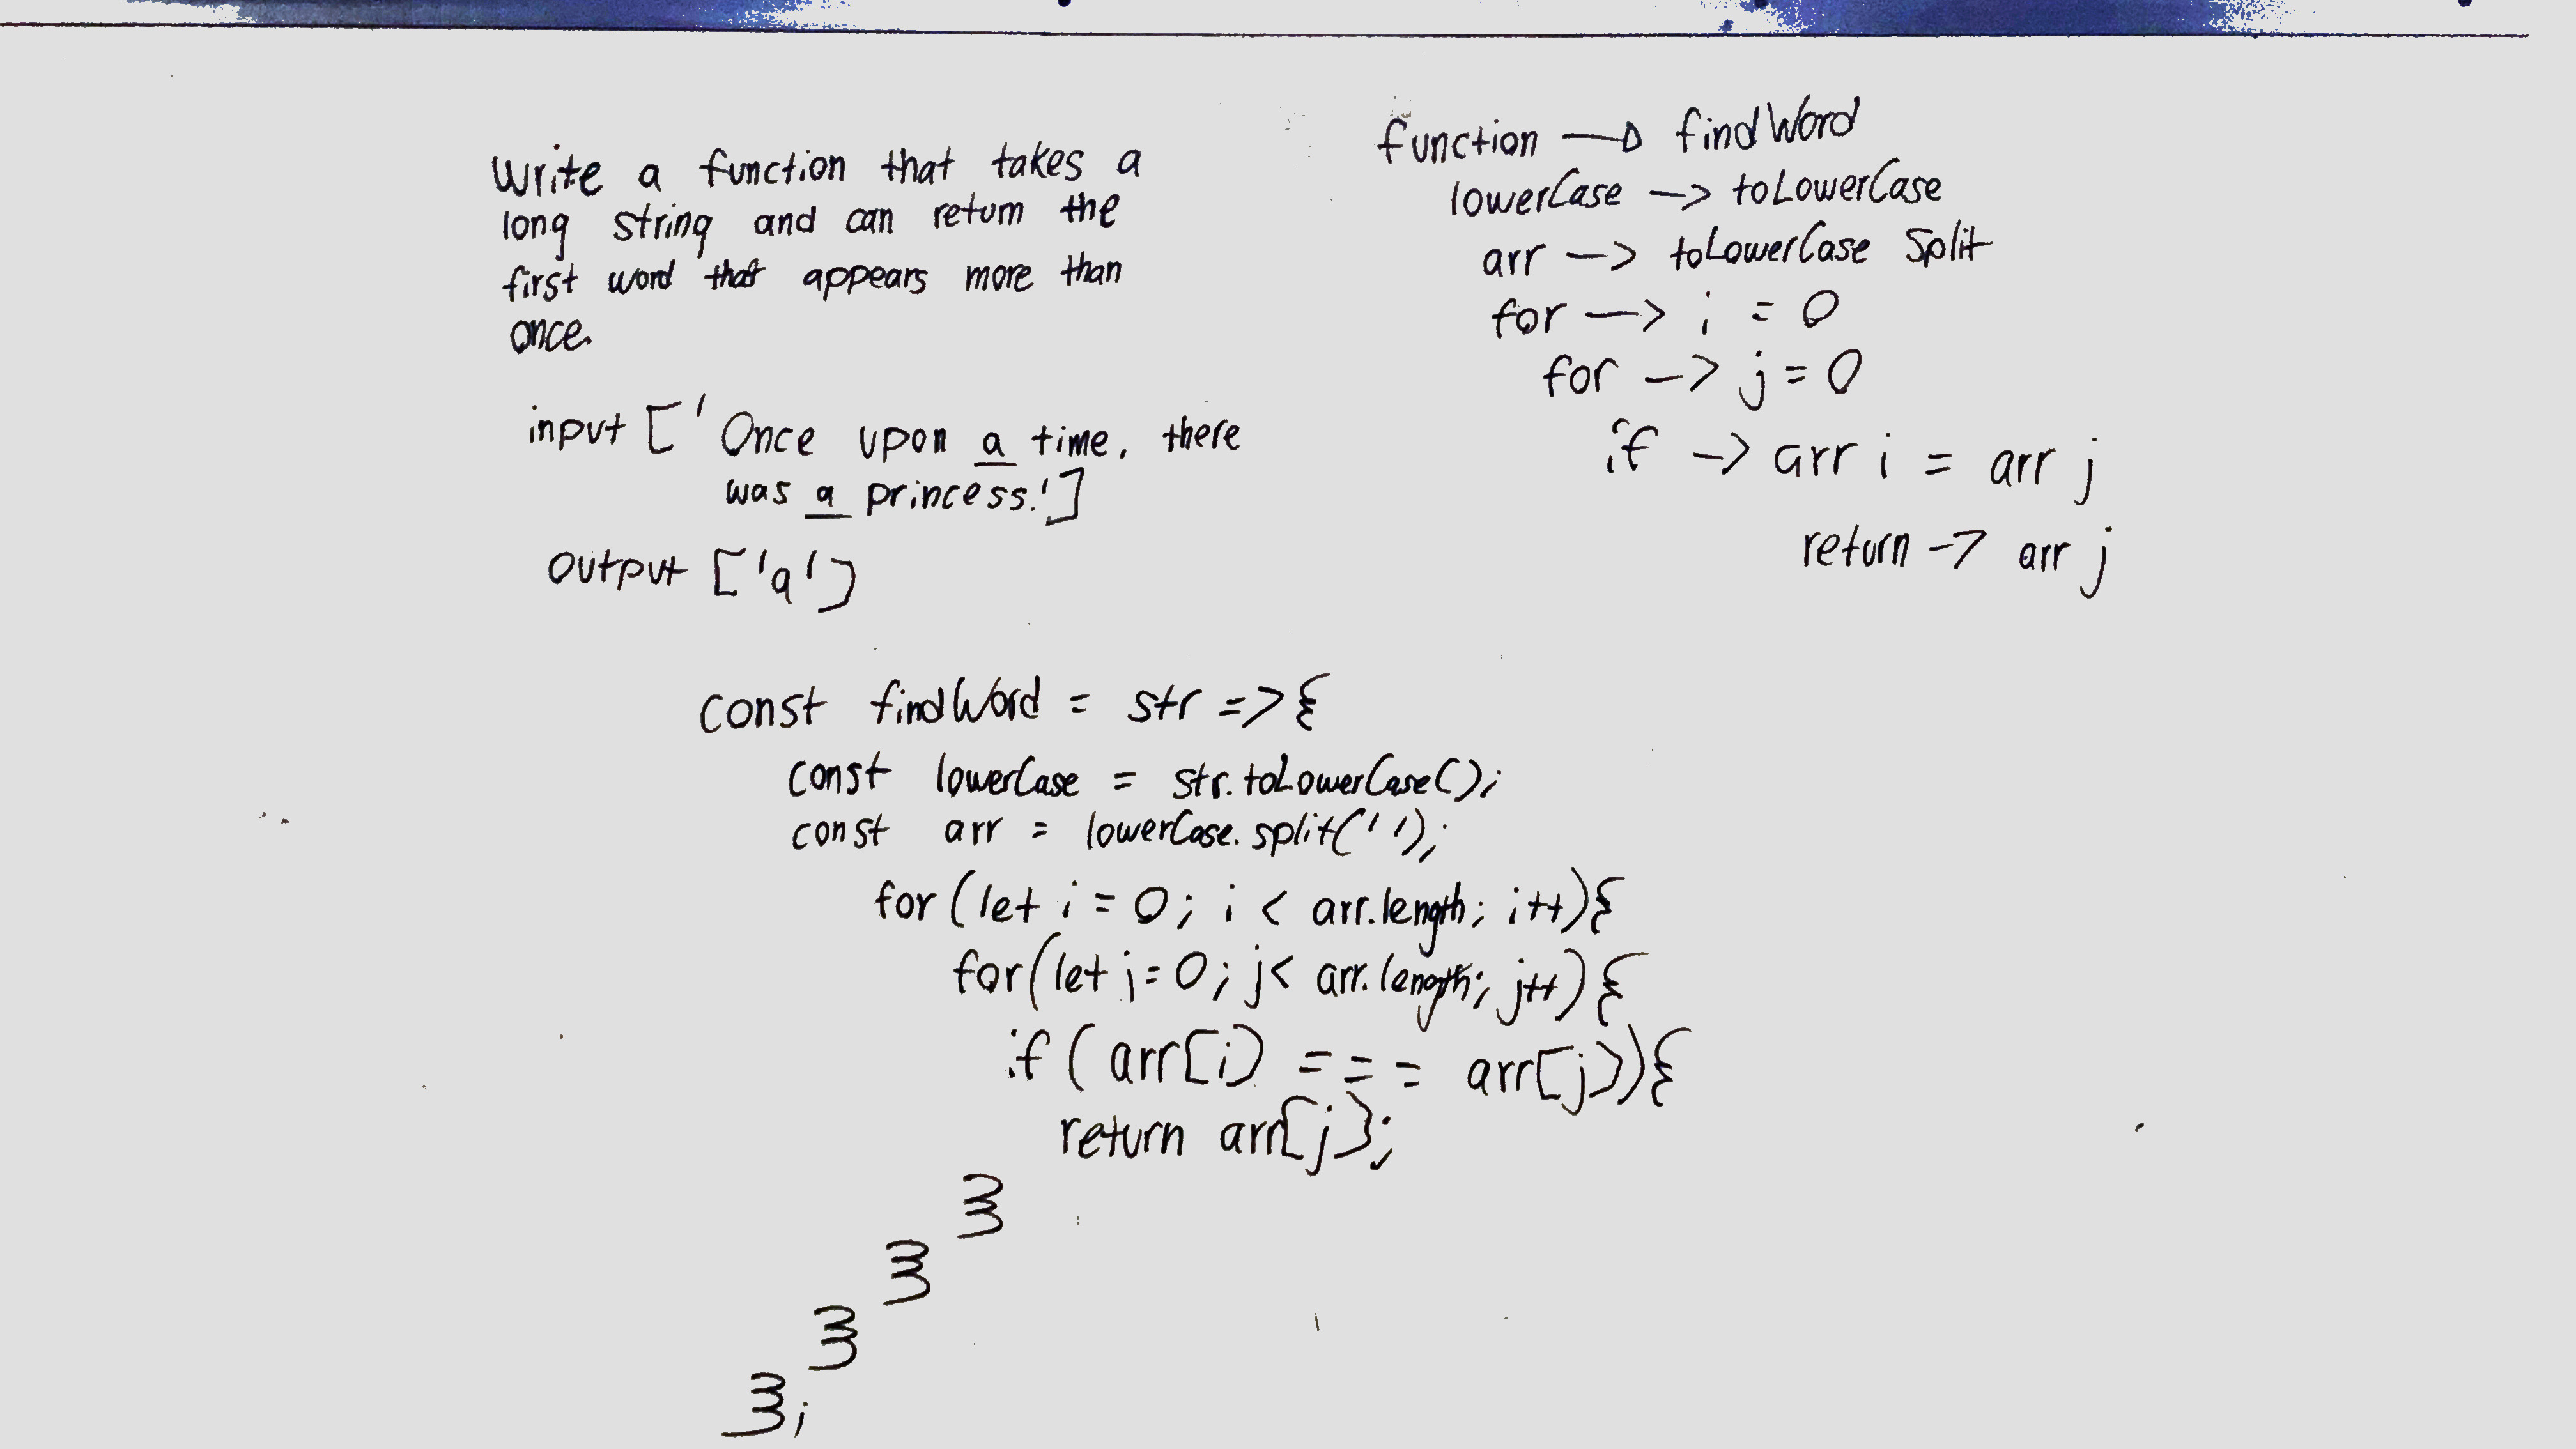 Write a function that takes a
long string and can return the
first word that appears more than
once.
input ['Once upon a time, there
was a princess.']
output ['a']
function —> findWord
lowerCase —> toLowerCase
arr —> toLowerCase split
for —> i = 0
for —> j = 0
if -> arr i = arr j
return -> arr j
const findWord = str => {
const lowerCase = str.toLowerCase();
const arr = lowerCase.split(' ');
for (let i = 0; i < arr.length; i++){
for(let j=0; j< arr.length; j++){
if ( arr[i] === arr[j]){
return arr[j];
}
}
}
};